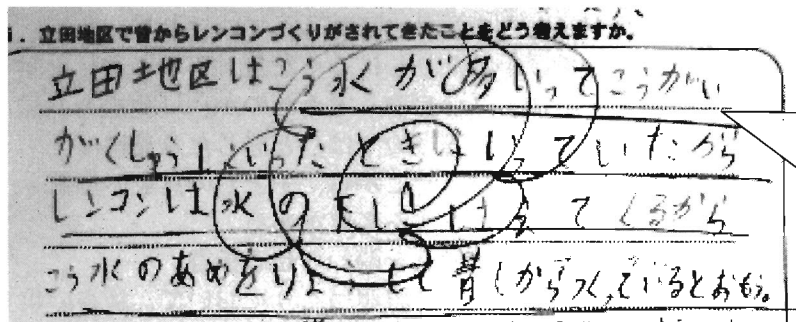 5. 立田地区で昔からレンコンづくりがされてきたことをどう考えますか。
立田地区はこう水が多いってこうがい
がくしゅうしいったときにいっていたから
レンコンは水の てくるから
こう水のあめをりようして昔しからつくっているとおもう。